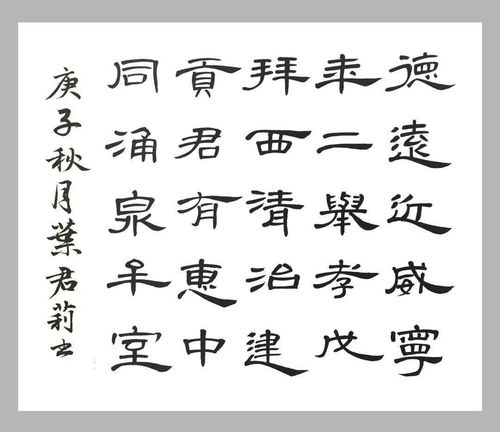 德遠近威寧
来二舉孝戊
拜西清治建
貢君有惠中
同涌泉牟室
庚子秋月葉君莉书